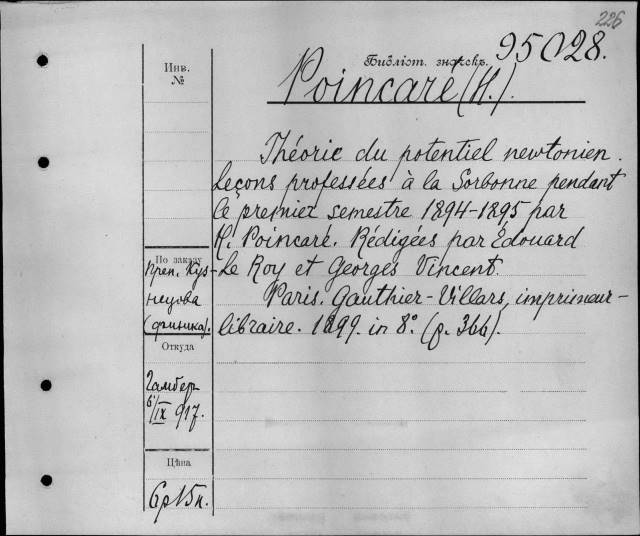 226
Библіот. значокъ. 95028.
Инв.
№
Poincaré (H.).
Théorie du potentiel newtonien.
Leçons professées à la Sorbonne pendant
le premier semestre 1894-1895 par
H. Poincaré. Rédigées par Édouard
Le Roy et Georges Vincent.
Paris. Gauthier-Villars, imprimeur-
libraire. 1899. in 8°. (p. 366).
По заказу
преп. Куз-
нецова
(физика).
Откуда
6/IX 917.
Цѣна
6р 15к.